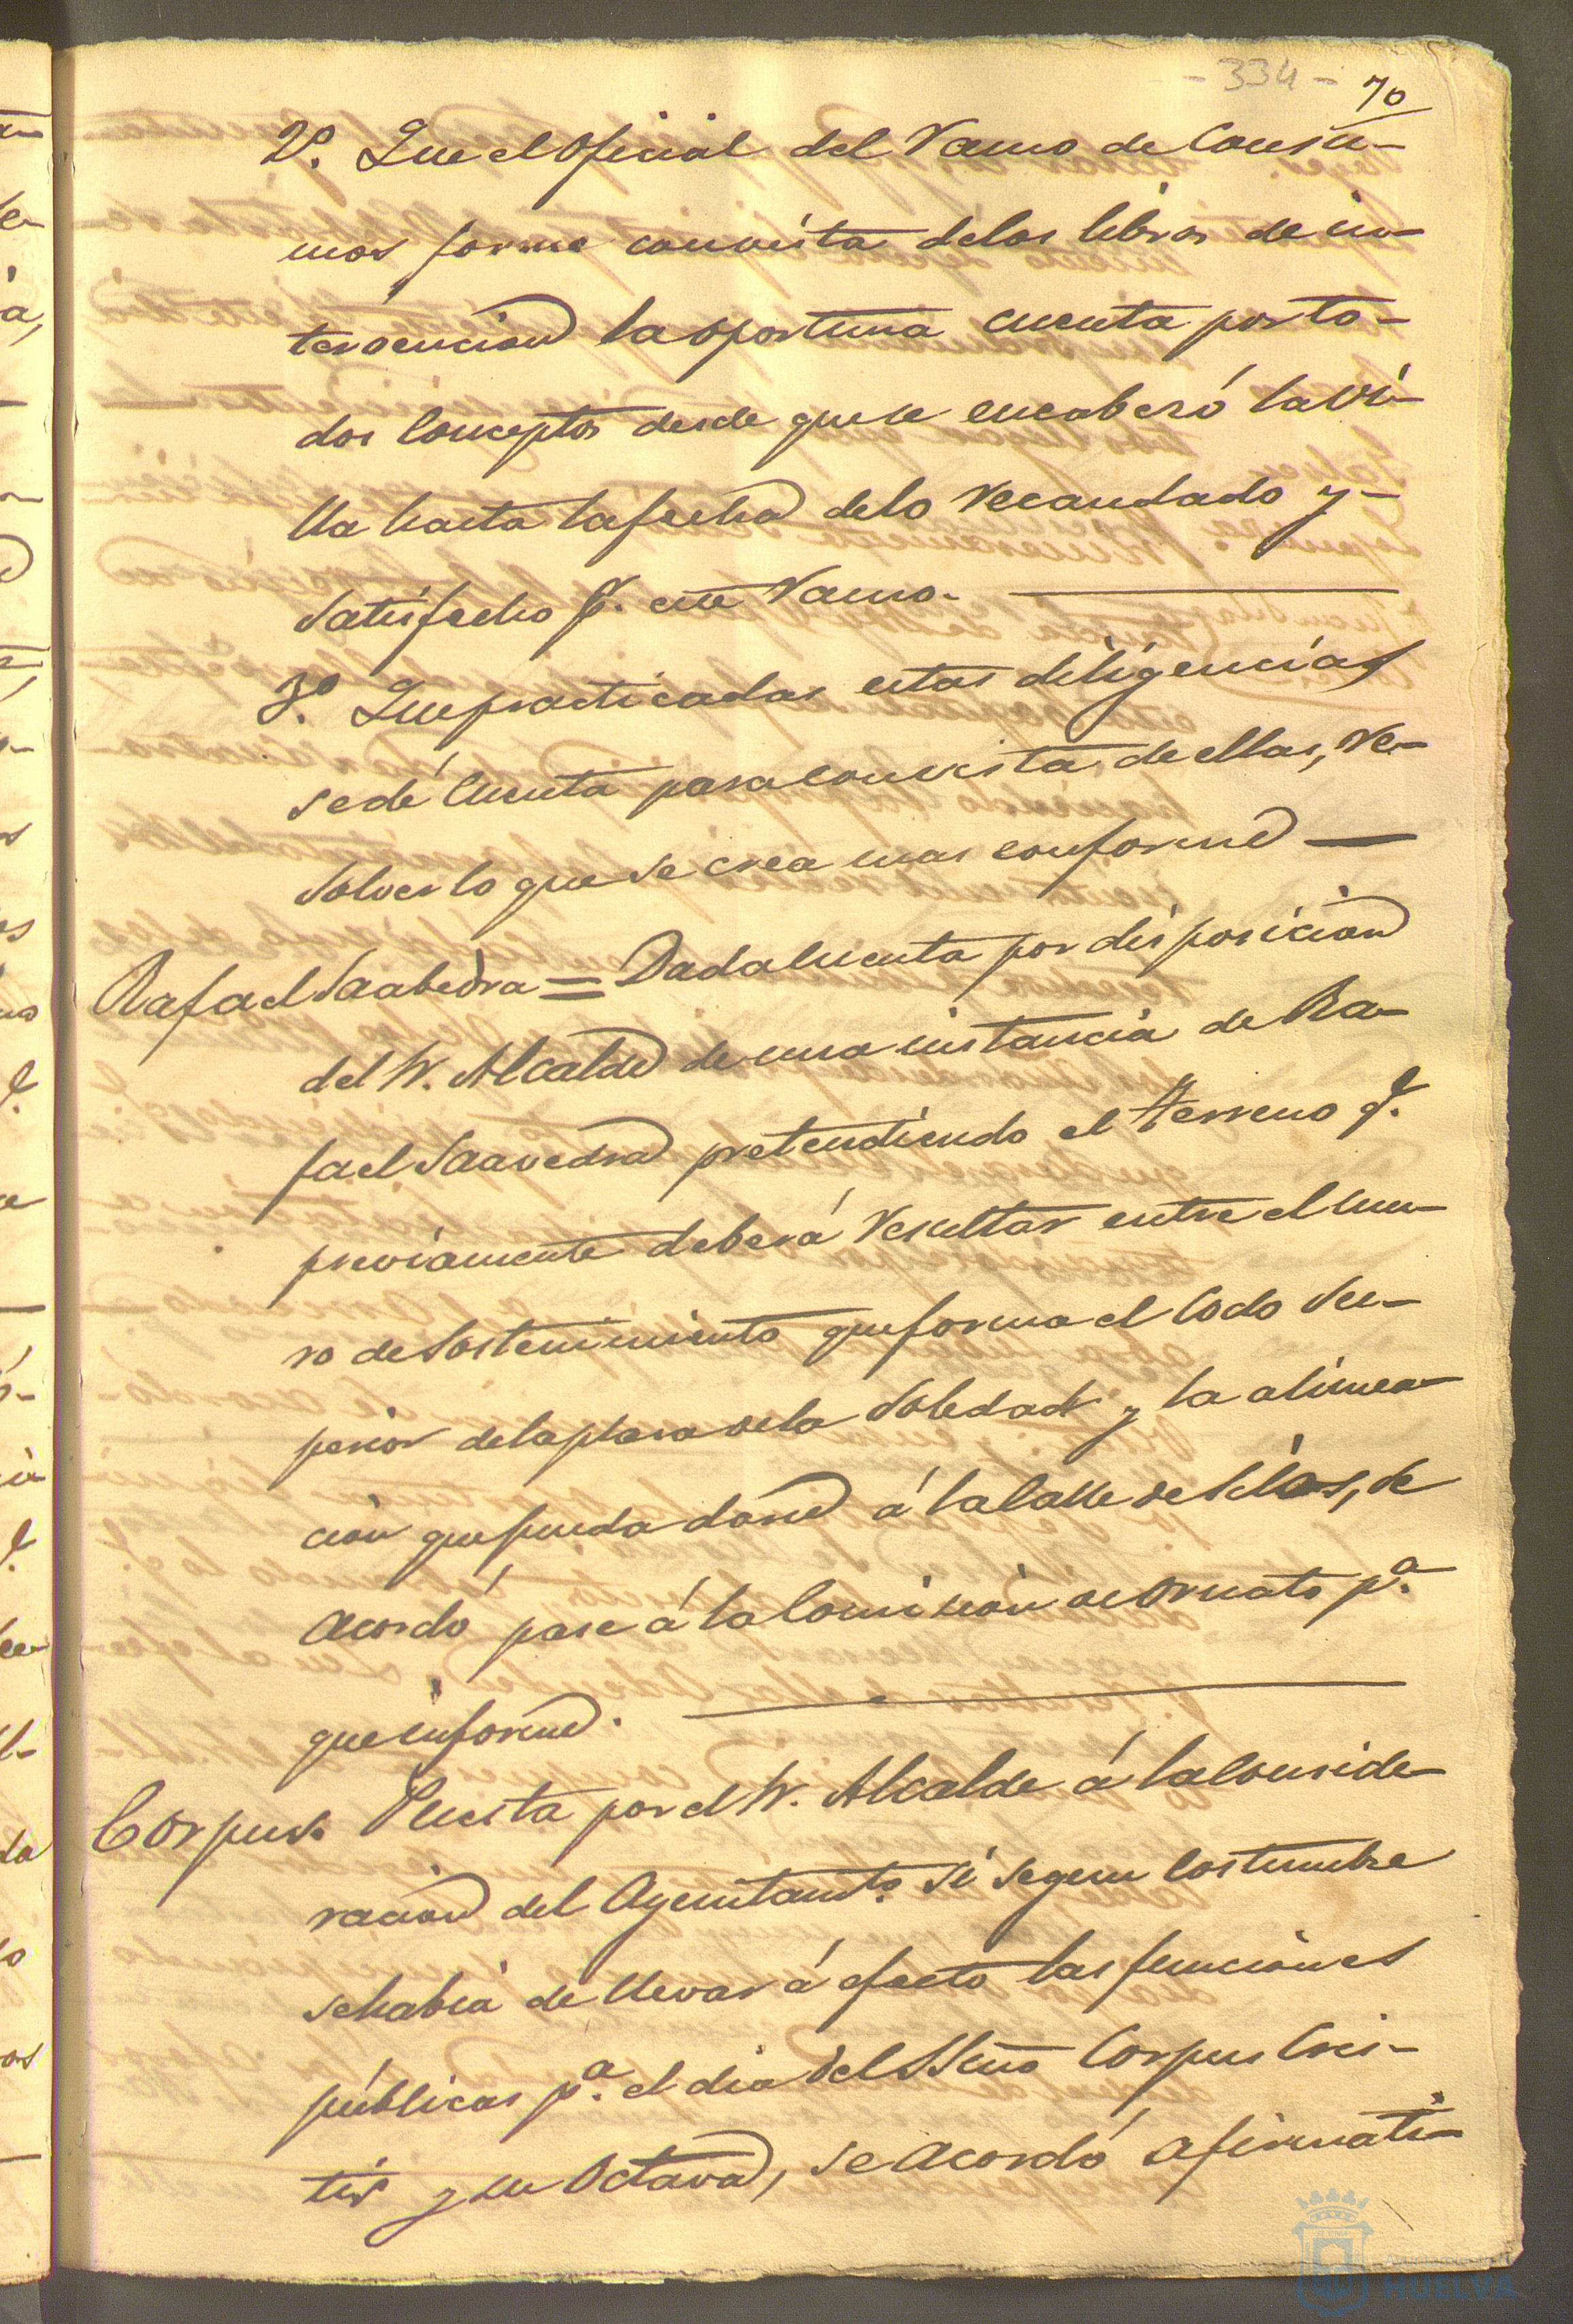 - 334 -
70
2º. Que el oficial del ramo de Consu-
mos forme con vista de los libros de in-
tervencion la oportuna cuenta por to-
dos Conceptos desde que se encabezó la vi-
lla hasta la fecha de lo recaudado y-
satisfecho p. este ramo.
3º. Que practicadas estas diligencias
se dé Cuenta para con vista de ellas, re-
solver lo que se crea mas conforme
Rafael Saabedra = Dada Cuenta por disposicion
del Sr. Alcalde de una instancia de Ra-
fael Saavedra pretendiendo el terreno q.
previamente deberá resultar entre el mu-
ro de Sostenimiento que forma el Codo Su-
perior de la plaza de la Soledad y la alinea-
cion que pueda darse á la Calle de Silos, se
acordó pase á la Comision de Ornato pª.
que informe.
Corpus. Puesta por el Sr. Alcalde á la conside-
racion del Ayuntamto. si segun Costumbre
se habia de llevar á efecto las funciones
públicas pª. el dia del SSmo Corpus Cris-
tis y su Octava, se acordó afirmati-
HUELVA